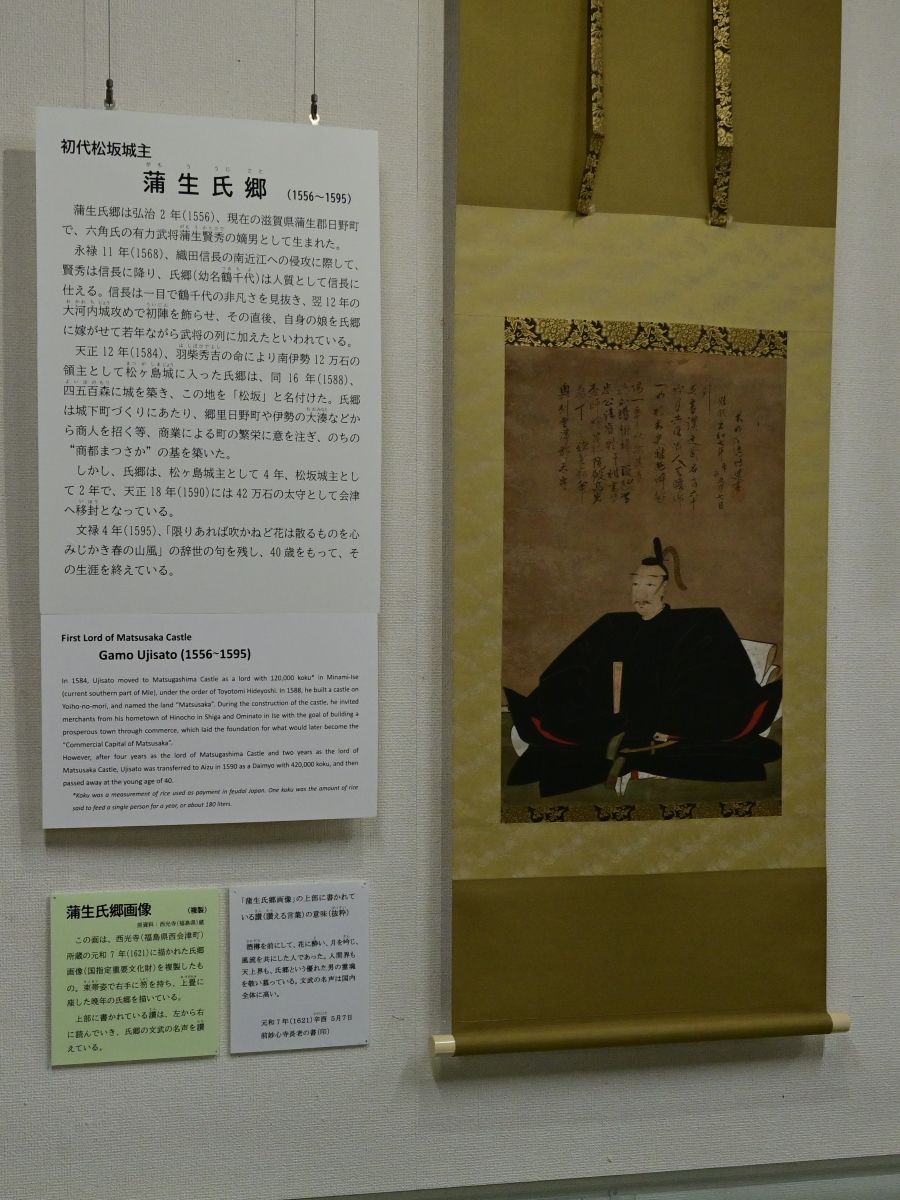 初代松坂城主
蒲生氏郷 (1556～1595)
がもう うじさと
蒲生氏郷は弘治 2 年(1556)、現在の滋賀県蒲生郡日野町
で、六角氏の有力武将蒲生賢秀の嫡男として生まれた。
永禄 11 年(1568)、織田信長の南近江への侵攻に際して、
賢秀は信長に降り、氏郷(幼名鶴千代)は人質として信長に
仕える。信長は一目で鶴千代の非凡さを見抜き、翌 12 年の
大河内城攻めで初陣を飾らせ、その直後、自身の娘を氏郷
に嫁がせて若年ながら武将の列に加えたといわれている。
天正 12 年(1584)、羽柴秀吉の命により南伊勢 12 万石の
領主として松ヶ島城に入った氏郷は、同 16 年(1588)、
四五百森に城を築き、この地を「松坂」と名付けた。氏郷
は城下町づくりにあたり、郷里日野町や伊勢の大湊などか
ら商人を招く等、商業による町の繁栄に意を注ぎ、のちの
“商都まつさか”の基を築いた。
しかし、氏郷は、松ヶ島城主として 4 年、松坂城主とし
て 2 年で、天正 18 年(1590)には 42 万石の太守として会津
へ移封となっている。
文禄 4 年(1595)、「限りあれば吹かねど花は散るものを心
みじかき春の山風」の辞世の句を残し、40 歳をもって、そ
の生涯を終えている。
First Lord of Matsusaka Castle
Gamo Ujisato (1556~1595)
In 1584, Ujisato moved to Matsugashima Castle as a lord with 120,000 koku* in Minami-Ise
(current southern part of Mie), under the order of Toyotomi Hideyoshi. In 1588, he built a castle on
Yoiho-no-mori, and named the land "Matsusaka". During the construction of the castle, he invited
merchants from his hometown of Hinocho in Shiga and Ominato in Ise with the goal of building a
prosperous town through commerce, which laid the foundation for what would later become the
"Commercial Capital of Matsusaka".
However, after four years as the lord of Matsugashima Castle and two years as the lord of
Matsusaka Castle, Ujisato was transferred to Aizu in 1590 as a Daimyo with 420,000 koku, and then
passed away at the young age of 40.
*Koku was a measurement of rice used as payment in feudal Japan. One koku was the amount of rice
said to feed a single person for a year, or about 180 liters.
蒲生氏郷画像 (複製)
原資料：西光寺(福島県)蔵
この画は、西光寺(福島県西会津町)
所蔵の元和 7 年(1621)に描かれた氏郷
画像(国指定重要文化財)を複製したも
の。束帯姿で右手に笏を持ち、上畳に
座した晩年の氏郷を描いている。
上部に書かれている讃は、左から右
に読んでいき、氏郷の文武の名声を讃
えている。
「蒲生氏郷画像」の上部に書かれて
いる讃(讃える言葉)の意味(抜粋)
酒樽を前にして、花に酔い、月を吟じ、
風流を共にした人であった。人間界も
天上界も、氏郷という優れた男の霊魂
を敬い慕っている。文武の名声は国内
全体に高い。
元和 7 年(1621)辛酉 5月7日
前妙心寺長老の書(印)